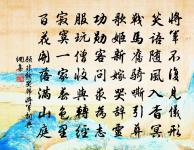 將軍不復見儀形
笑語隨風入杳冥
戰馬舊騎嘶引葬
歌姬新嫁哭辭靈
功勛客問求為誌
服玩僧收與轉經
寂寞一家春色裏
百花開落滿山庭